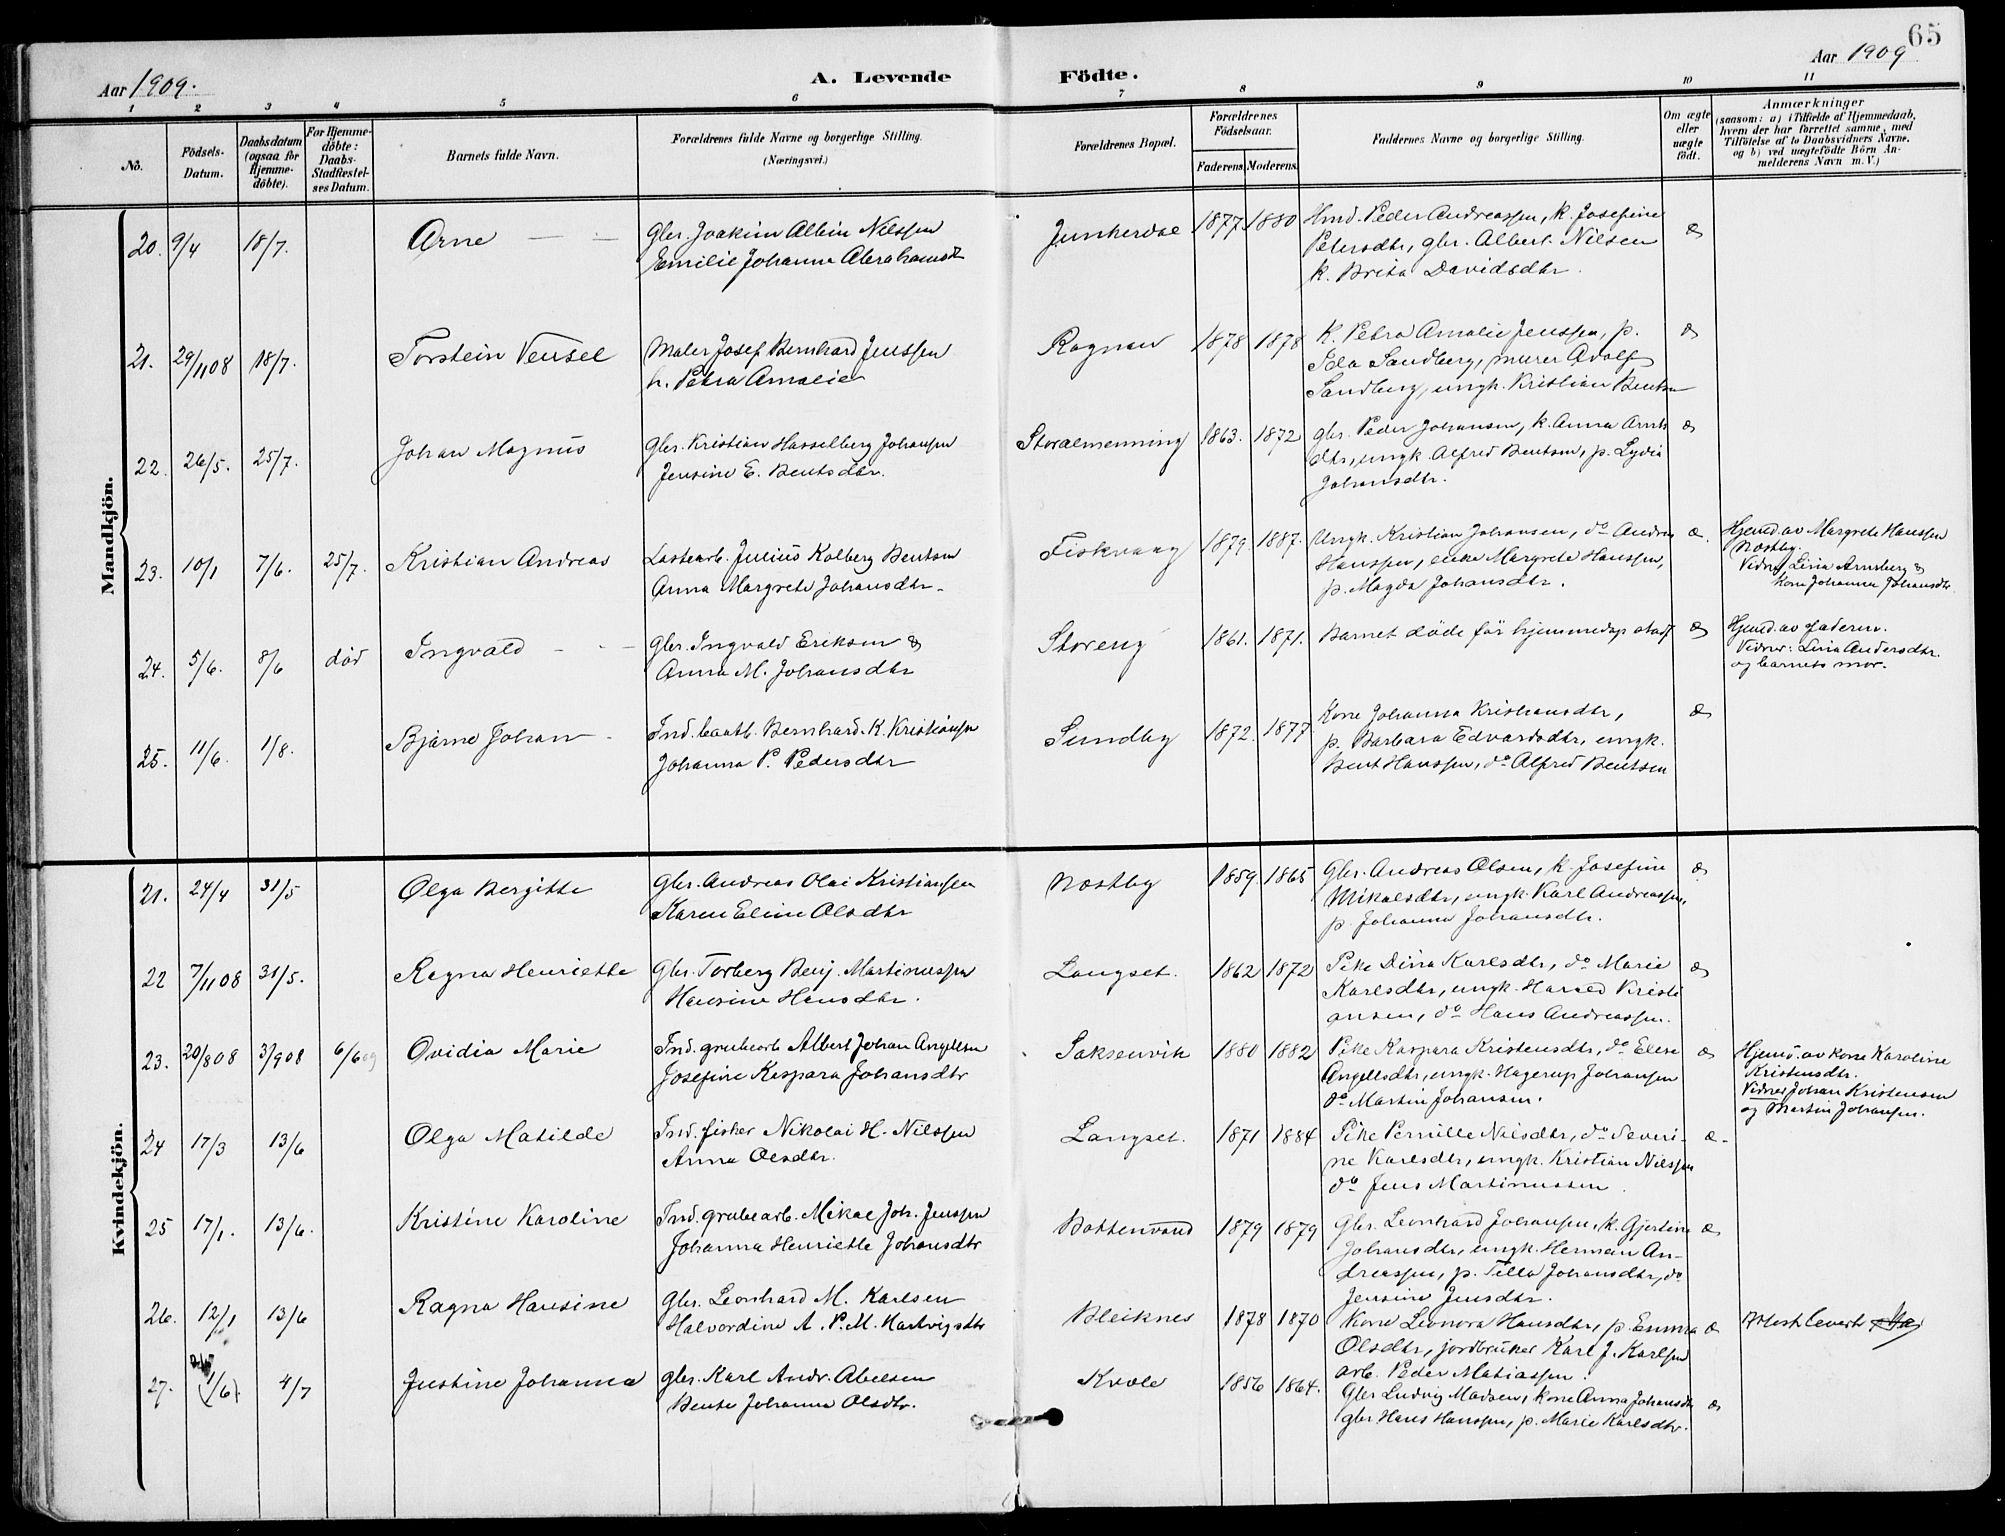 65
Aar 1909.
A. Levende Födte.
Aar 1909
1 2 3 4 5 6 7 8 9 10 11
No.
Födsels-
Datum.
Daabsdatum
(ogsaa for
Hjemme-
döbte).
For Hjemme-
döbte:
Daabs-
Stadfæstel-
ses Datum.
Barnets fulde Navn.
Forældrenes fulde Navne og borgerlige Stilling.
(Næringsvei.)
Forældrenes Bopæl.
Forældrenes
Födselsaar.
Faderens. Moderens.
Faddernes Navne og borgerlige Stilling.
Om ægte
eller
uægte
födt.
Anmærkninger
(saasom: a) i Tilfælde af Hjemmedaab,
hvem der har forrettet samme, med
Tilföielse af to Daabsvidners Navne,
og b) ved uægtefödte Börn An-
melderens Navn m. V.)
Mandkjön.
20. 9/4 18/7. Arne
Gbr. Joakim Albin Nilssen
Emilie Johanna Abrahamsdt
Junkerdal 1877. 1880
Hmd. Peder Andreassen, k. Josefine
Petersdtr, gbr. Albert Nilsen
k. Brita Davidsdtr.
æ
21. 29/11 08 18/7. Torstein Vensel
Maler Josef Bernhard Jenssen
h. Petra Amalie
Rognan 1878 1878
K. Petra Amalie Jenssen, p.
Ida Sandberg, murer Adolf
Sandberg, ungk. Kristian Bentsen
æ
22. 26/5. 25/7. Johan Magnus
Gbr. Kristian Hasselberg Johansen
Jensine E. Bentsdtr.
Storalmenning 1863. 1872
gbr. Peder Johansen, k. Anna Arnts
dtr, ungk. Alfred Bentsen, p. Lydia
Johansdtr.
æ
23. 10/1 7/6. 25/7. Kristian Andreas
Lastearb. Julius Kolberg Bentsen
Anna Margrete Johansdtr.
Fiskvaag 1879. 1887.
Ungk. Kristian Johansen, do Andreas
Hanssen, enke Margrete Hanssen,
p. Magda Johansdtr.
æ.
Hjemd. av Margrete Hanssen
Nestby.
Vidner Lina Arnsberg &
Kone Johanna Johansdtr.
24. 5/6. 8/6 död Ingvald
Gbr. Ingvald Eriksen &
Anna M. Johansdtr
Storeng 1861. 1871.
Barnet döde før hjemmedåp stadf
æ
Hjemd. av faderen.
Vidner: Lina Andersdtr.
og barnets mor.
25. 11/6. 1/8. Bjarne Johan
Ind. baatb. Bernhard K. Kristiansen
Johanna P. Pedersdtr
Sundby 1872. 1877
Kone Johanna Kristiansdtr,
p. Barbara Edvardsdtr, ungk.
Bent Hanssen, do Alfred Bentsen
æ
Kvindekjön.
21. 24/4 31/5 Olga Bergitte
Gbr. Andreas Olai Kristiansen
Karen Eline Olsdtr
Nestby 1859. 1865
Gbr. Andreas Olsen, k. Josefine
Mikalsdtr, ungk. Karl Andreassen,
p. Johanna Johansdtr.
æ
22 7/11 08 31/5. Ragna Henriette
Gbr. Torberg Benj. Martinussen
Hansine Hansdtr.
Langset. 1862 1872
Pike Dina Karlsdtr, do Marie
Karlsdtr, ungk. Harald Kristi
ansen, do Hans Andreassen.
æ
23. 20/8 08 3/9 08 6/6 09 Ovidia Marie
Ind. grubearb Albert Johan Angelsen
Josefine Kaspara Johansdtr
Saksenvik 1880 1882
Pike Kaspara Kristensdtr, do Elise
Angellsdtr, ungk. Hagerup Johansen
do Martin Johansen.
æ
Hjemd. av kone Karoline
Kristensdtr.
Vidner Johan Kristensen
og Martin Johansen.
24 17/3 13/6 Olga Matilde
Ind. fisker Nikolai H. Nilssen
Anna Olsdtr.
Langset. 1871 1884
Pike Pernille Nilsdtr, do Severi-
ne Karlsdtr, ungk. Kristian Nilssen
do Jens Martinussen.
æ
25 17/1. 13/6. Kristine Karoline
Ind. grubearb. Mikal Joh. Jenssen
Johanna Henriette Johansdtr
Bottenvand 1879 1879
Gbr. Leonhard Johansen, k. Gjertine
Johansdtr, ungk. Herman An-
dreassen, p. Tella Johansdtr, do
Jensine Jensdtr.
æ
26. 12/1 13/6 Ragna Hansine
Gbr. Leonhard M. Karlsen
Halvordine A. P. M. Hartvigsdtr
Bleiknes 1878 1870
Kone Leonora Hansdtr, p. Emma
Olsdtr, jordbruker Karl J. Karlsen
arb. Peder Matiassen.
æ
Attest levert
27. (1/6). 4/7 Justine Johanna
gbr. Karl Andr. Abelsen
Bentse Johanna Olsdtr.
Kvæle 1856 1864.
Gbr Ludvig Madsen, kone Anna Johansdtr
gbr Hans Hanssen, p. Marie Karlsdtr.
æ